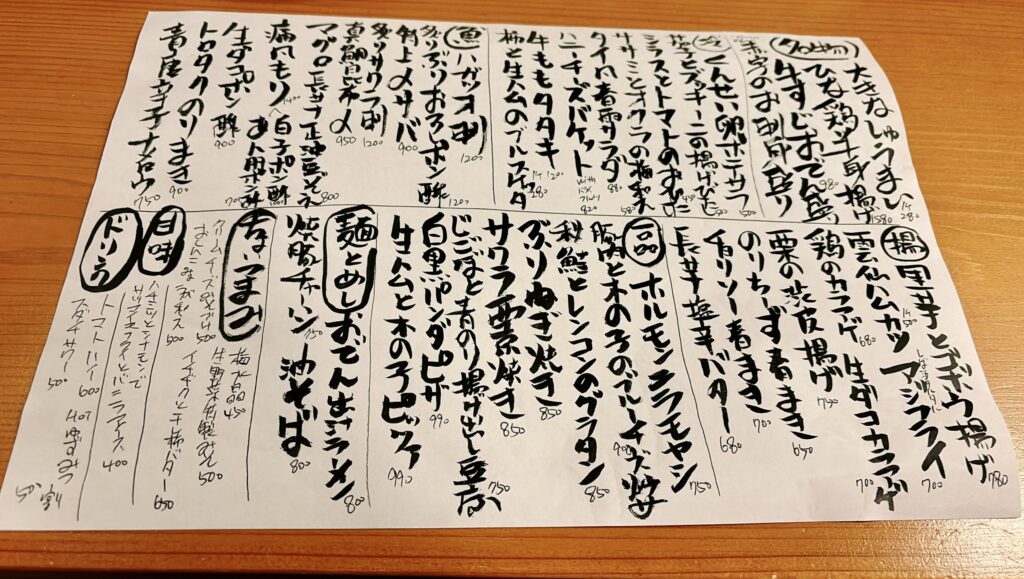 名物
大きなしゅうまい 1ケ 280
ひな鶏半身揚げ 1580
牛すじおでん盛 980
赤字のお刺身盛り
冷
くんせい卵ポテサラ 500
シラスとトマトのおひたし
ササミとオクラの梅和え
タイ風春雨サラダ 880
ハニーチーズバケット 820
牛ももタタキ 1200
柿と生ハムのブルスケッタ 1ケ 280
魚
ハガツオ刺 1200
炙りぶりおろしポン酢 1200
特上〆サバ 900
炙りサワラ刺 1200
真鯛昆布〆 950
マグロ 長芋 正油豆 800
痛風もり
白子ポン酢
あん肝ポン酢
生ダコポン酢 900
トロタクのりまき 900
750
揚
里芋とゴボウ揚げ 780
雲仙ハムカツ 1ケ 450
アジフライ 700
鶏のカラアゲ 680
生ダコカラアゲ 700
栗の渋皮揚げ 750
のりちーず春まき 650
イカリソー春まき 700
長芋塩辛バター 680
一品
ホルモンニラモヤシ 750
豚肉と木の子のブルーチーズ焼 900
秋鮭とレンコンのグラタン 850
ぶりねぎ焼き 850
サワラ西京焼き 850
じごぼと青のり揚げ出し豆腐 750
白黒パンダピザ 990
生ハムと木の子ピッツァ 990
麺とめし
おでん出汁ラーメン 800
焼豚チャーハン 750
油そば 800
ちょいつまみ
梅水晶 450
クリームチーズみそづけ 500
500
500
650
甘味
ハチミツとシナモンで
バニラアイス 400
ドリンク
トマトハイ 600
スダチサワー 500
500